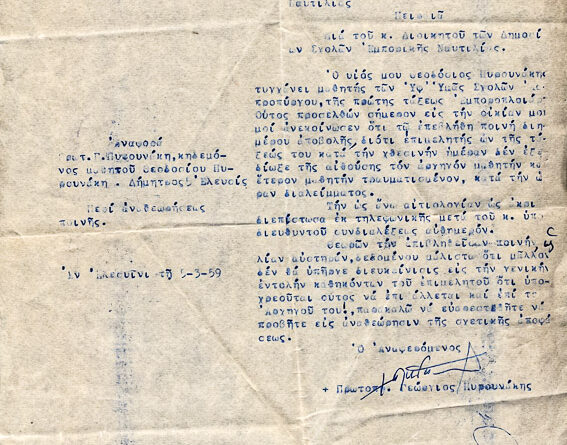 Ναυτιλίας
Πειραιᾶ
Διά τοῦ κ. Διοικητοῦ τῶν Δημοσί
ων Σχολῶν Ἐμπορικῆς Ναυτιλίας.
Ὁ υἱός μου Θεοδόσιος Πυρουνάκης
τυγχάνει μαθητής τῶν ὑφ' Ὑμᾶς Σχολῶν Ἀσ
προπύργου, τῆς πρώτης τάξεως Ἐμποροπλοιάρ
Οὗτος προσελθών σήμερον εἰς τήν οἰκίαν μου
μοί ἀνεκοίνωσεν ὅτι τῷ ἐπεβλήθη ποινή διη
μέρου ἀποβολῆς, διότι ἐπιμελητής ὤν τῆς τά
ξεώς του κατά τήν χθεσινήν ἡμέραν δέν ἐξε
δίωξε τῆς αἰθούσης τόν ἀρχηγόν μαθητήν καί
ἕτερον μαθητήν τραυματισμένον, κατά τήν ὥ
ραν διαλείμματος.
Τήν ὡς ἄνω αἰτιολογίαν ὡς ἀκρι
διεπίστωσα ἐκ τηλεφωνικῆς μετά τοῦ κ. ὑπο
διευθυντοῦ συνδιαλέξεως αὐθημερόν.
Θεωρῶν τήν ἐπιβληθεῖσαν ποινήν
λίαν αὐστηράν, δεδομένου μάλιστα ὅτι μᾶλλον
δέν θά ὑπῆρχε διευκρίνισις εἰς τήν γενικήν
ἐντολήν καθηκόντων τοῦ ἐπιμελητοῦ ὅτι ὑπο
χρεοῦται οὗτος νά ἐπιβάλλεται καί ἐπί τοῦ
Ἀρχηγοῦ του!, παρακαλῶ νά εὐαρεστηθῆτε νά
προβῆτε εἰς ἀναθεώρησιν τῆς σχετικῆς ἀποφά
σεως.
Ὁ Ἀναφερόμενος
+ Πρωτοπ. Γεώργιος Πυρουνάκης
Ἀναφορά
Γ. Πυρουνάκη, κηδεμό
νος μαθητοῦ Θεοδοσίου Πυ
ρουνάκη. Δήμητρος 5 Ἐλευσίς
Περί ἀναθεωρήσεως
ποινῆς.
Ἐν Ἐλευσῖνι τῇ 5-3-59